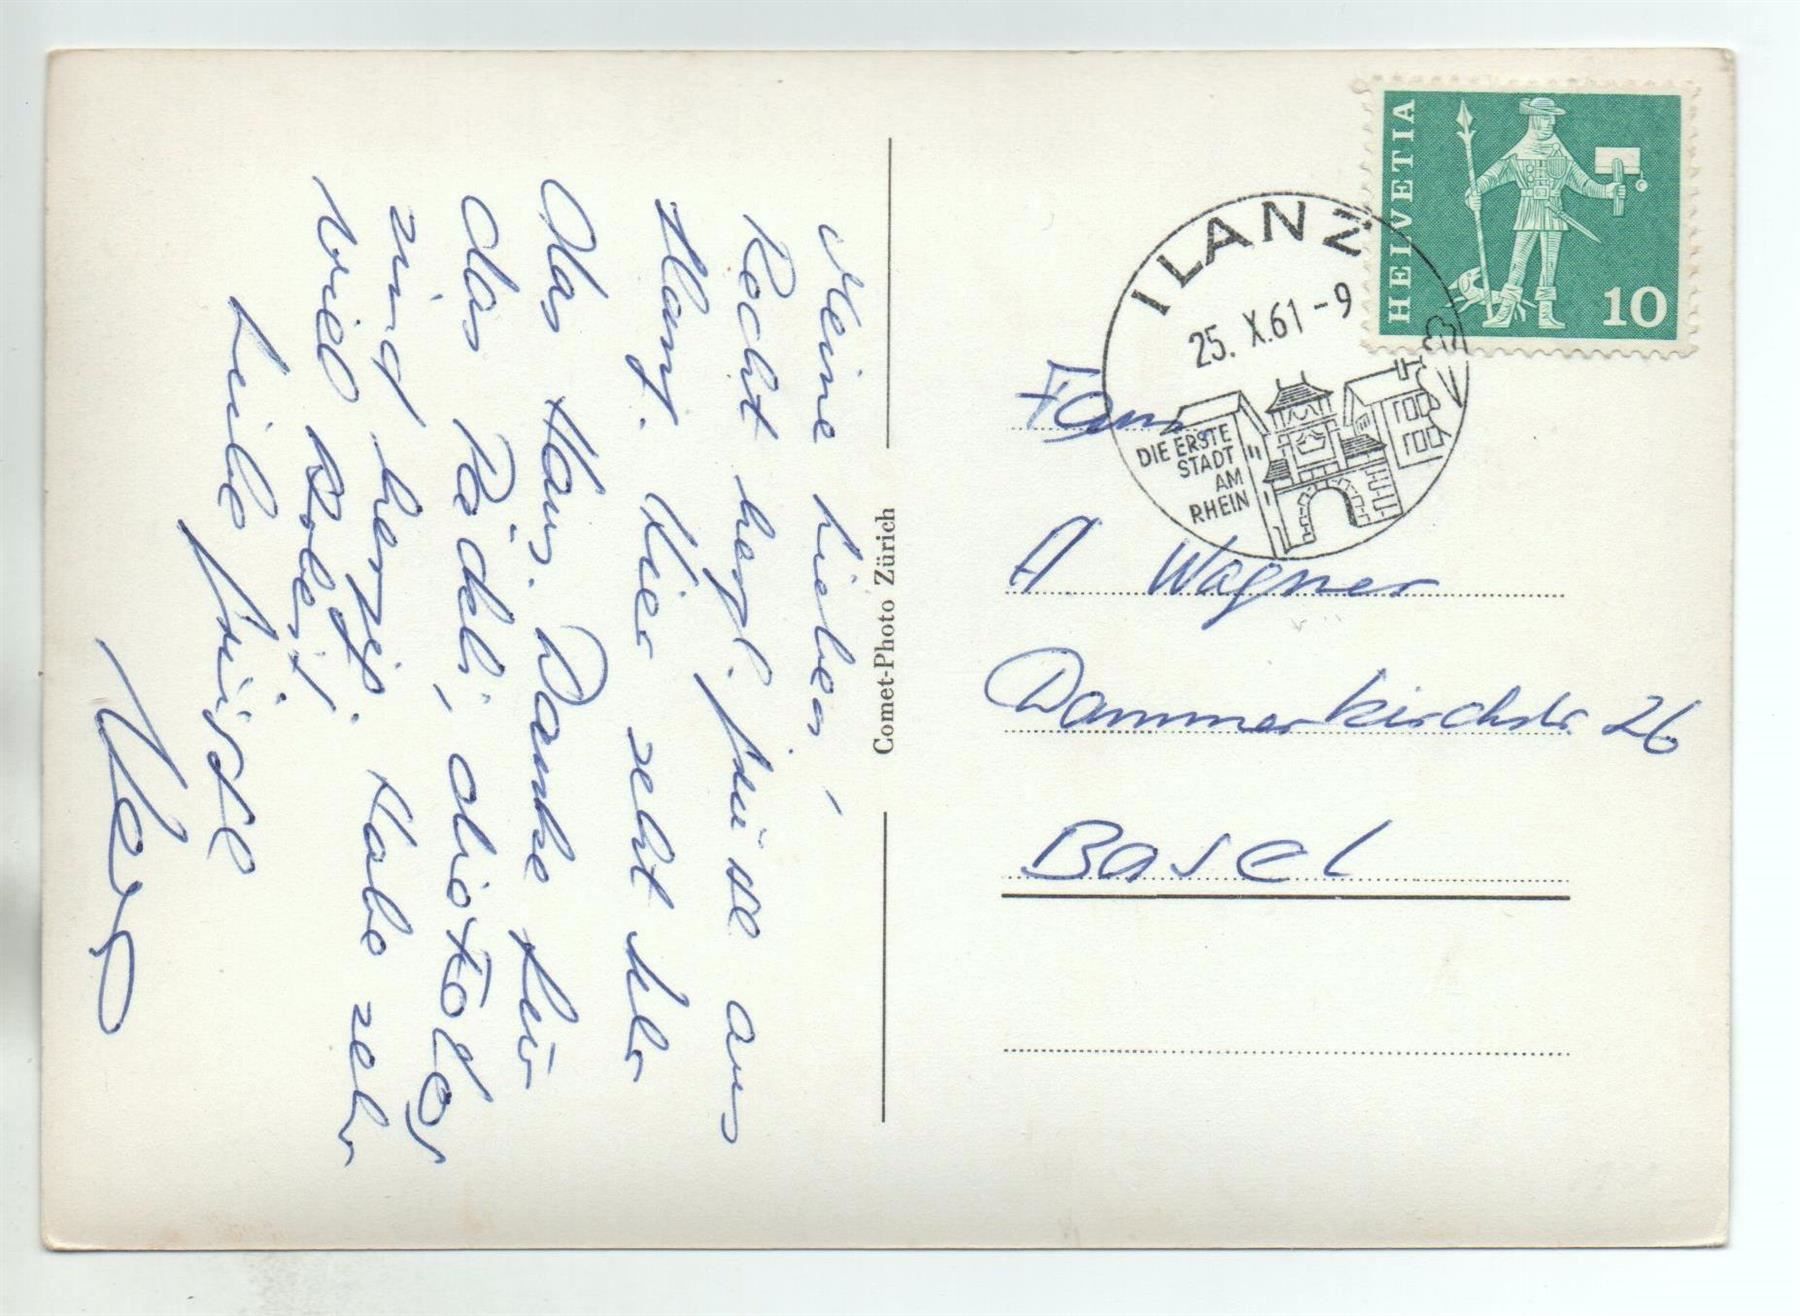 Meine Lieben,
Recht herzl. Grüsse aus
Ilanz. Hier geht
das Haus. Danke für
das Päckli,
sind herzig. Habe
viel Arbeit,
Liebe Grüsse
Comet-Photo Zürich
HELVETIA
10
ILANZ
25.X.61-9
DIE ERSTE
STADT
AM
RHEIN
Fam.
A Wagner
Dammerkirchstr. 26
Basel